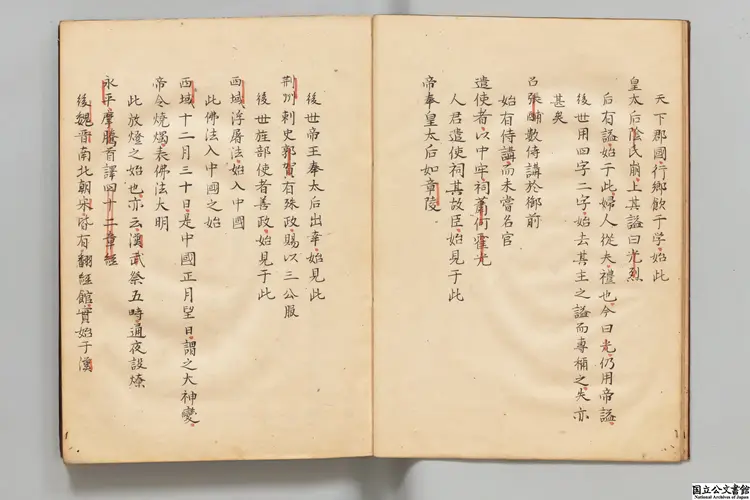 天下郡國行鄉飲于学始此
皇太后陰氏崩上其謚曰光烈
后有謚始于此婦人從夫禮也今曰光仍用帝謚
後世用四字二字始去其主之謚而專稱之失亦
甚矣
召張酺數侍講於御前
始有侍講而未嘗名官
遣使者以中牢祠蕭何霍光
人君遣使祠其故臣始見于此
帝奉皇太后如章陵
後世帝王奉太后出幸始見此
荆州刺史郭賀有殊政賜以三公服
後世旌部使者善政始見于此
西域浮屠法始入中國
此佛法入中國之始
西域十二月三十日是中國正月望日謂之大神變
帝令燒燭表佛法大明
此放燈之始也亦云漢武祭五時通夜設燎
永平摩騰首譯四十二章經
後魏晋南北朝宋皆有翻經館實始于漢
国立公文書館
National Archives of Japan